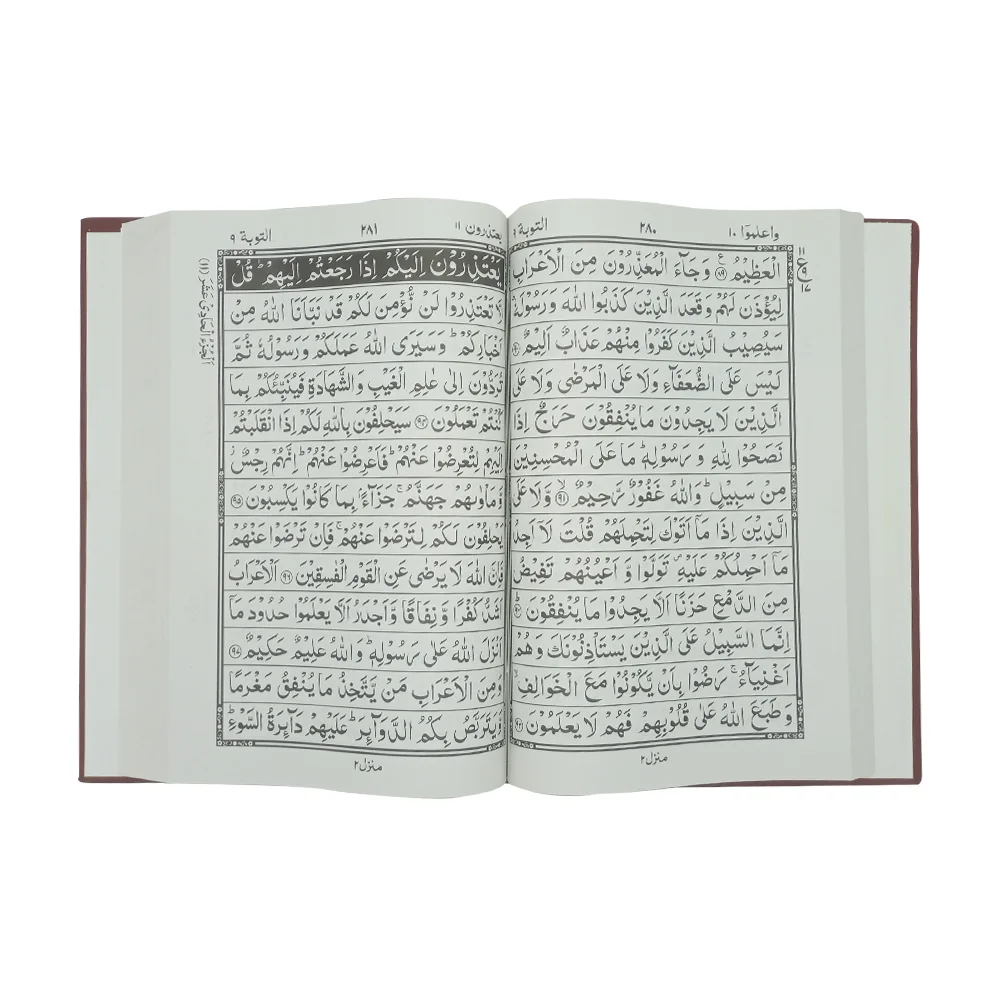 واعلموا ١٠
٢٨٠
التوبة ٩
الْعَظِيْمُ ﴿٨٩﴾ وَجَآءَ الْمُعَذِّرُوْنَ مِنَ الْاَعْرَابِ
لِيُؤْذَنَ لَهُمْ وَقَعَدَ الَّذِيْنَ كَذَبُوا اللّٰهَ وَرَسُوْلَهٗ
سَيُصِيْبُ الَّذِيْنَ كَفَرُوْا مِنْهُمْ عَذَابٌ اَلِيْمٌ ﴿٩٠﴾
لَيْسَ عَلَى الضُّعَفَآءِ وَلَا عَلَى الْمَرْضٰى وَلَا عَلَى
الَّذِيْنَ لَا يَجِدُوْنَ مَا يُنْفِقُوْنَ حَرَجٌ اِذَا
نَصَحُوْا لِلّٰهِ وَ رَسُوْلِهٖ مَا عَلَى الْمُحْسِنِيْنَ
مِنْ سَبِيْلٍ ؕ وَاللّٰهُ غَفُوْرٌ رَّحِيْمٌ ﴿٩١﴾ ۙ وَّلَا عَلَى
الَّذِيْنَ اِذَا مَاۤ اَتَوْكَ لِتَحْمِلَهُمْ قُلْتَ لَاۤ اَجِدُ
مَاۤ اَحْمِلُكُمْ عَلَيْهِ ۪ تَوَلَّوْا وَّ اَعْيُنُهُمْ تَفِيْضُ
مِنَ الدَّمْعِ حَزَنًا اَلَّا يَجِدُوْا مَا يُنْفِقُوْنَ ﴿٩٢﴾ ؕ
اِنَّمَا السَّبِيْلُ عَلَى الَّذِيْنَ يَسْتَاْذِنُوْنَكَ وَهُمْ
اَغْنِيَآءُ ۚ رَضُوْا بِاَنْ يَّكُوْنُوْا مَعَ الْخَوَالِفِ ۙ
وَ طَبَعَ اللّٰهُ عَلٰى قُلُوْبِهِمْ فَهُمْ لَا يَعْلَمُوْنَ ﴿٩٣﴾
منزل ٢
يعتذرون ١١
٢٨١
التوبة ٩
يَعْتَذِرُوْنَ اِلَيْكُمْ اِذَا رَجَعْتُمْ اِلَيْهِمْ ؕ قُلْ
لَّا تَعْتَذِرُوْا لَنْ نُّؤْمِنَ لَكُمْ قَدْ نَبَّاَنَا اللّٰهُ مِنْ
اَخْبَارِكُمْ ؕ وَ سَيَرَى اللّٰهُ عَمَلَكُمْ وَرَسُوْلُهٗ ثُمَّ
تُرَدُّوْنَ اِلٰى عٰلِمِ الْغَيْبِ وَالشَّهَادَةِ فَيُنَبِّئُكُمْ بِمَا
كُنْتُمْ تَعْمَلُوْنَ ﴿٩٤﴾ سَيَحْلِفُوْنَ بِاللّٰهِ لَكُمْ اِذَا انْقَلَبْتُمْ
اِلَيْهِمْ لِتُعْرِضُوْا عَنْهُمْ ؕ فَاَعْرِضُوْا عَنْهُمْ ؕ اِنَّهُمْ رِجْسٌ ؗ
وَّ مَاْوٰىهُمْ جَهَنَّمُ ۚ جَزَآءًۢ بِمَا كَانُوْا يَكْسِبُوْنَ ﴿٩٥﴾
يَحْلِفُوْنَ لَكُمْ لِتَرْضَوْا عَنْهُمْ ۚ فَاِنْ تَرْضَوْا عَنْهُمْ
فَاِنَّ اللّٰهَ لَا يَرْضٰى عَنِ الْقَوْمِ الْفٰسِقِيْنَ ﴿٩٦﴾ اَلْاَعْرَابُ
اَشَدُّ كُفْرًا وَّ نِفَاقًا وَّ اَجْدَرُ اَلَّا يَعْلَمُوْا حُدُوْدَ مَاۤ
اَنْزَلَ اللّٰهُ عَلٰى رَسُوْلِهٖ ؕ وَ اللّٰهُ عَلِيْمٌ حَكِيْمٌ ﴿٩٧﴾
وَمِنَ الْاَعْرَابِ مَنْ يَّتَّخِذُ مَا يُنْفِقُ مَغْرَمًا
وَّ يَتَرَبَّصُ بِكُمُ الدَّوَآئِرَ ؕ عَلَيْهِمْ دَآئِرَةُ السَّوْءِ ؕ
منزل ٢
اَلْجُزْءُ الْحَادِىْ عَشَرَ (١١)